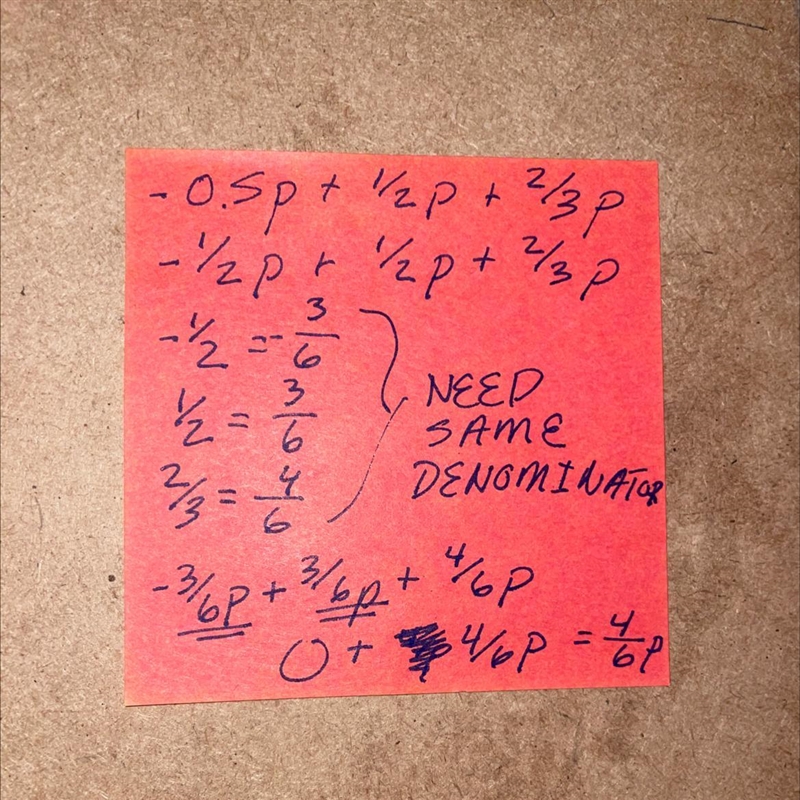 -0.5p + 1/2p + 2/3p
-1/2p + 1/2p + 2/3p
-1/2 = -3/6
1/2 = 3/6
2/3 = 4/6
NEED
SAME
DENOMINATOR
-3/6p + 3/6p + 4/6p
0 + 4/6p = 4/6p